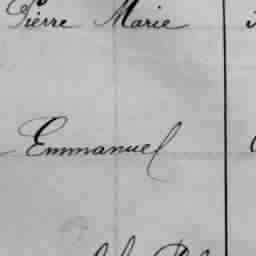 Pierre Marie
Emmanuel